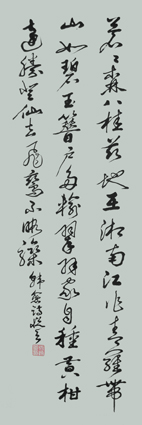 蒼々森八桂兹地在湘南江作青羅帶
山如碧玉簪户多輸翠羽家自種黄柑
遠勝登仙去飛鸞不暇驂 韓愈詩